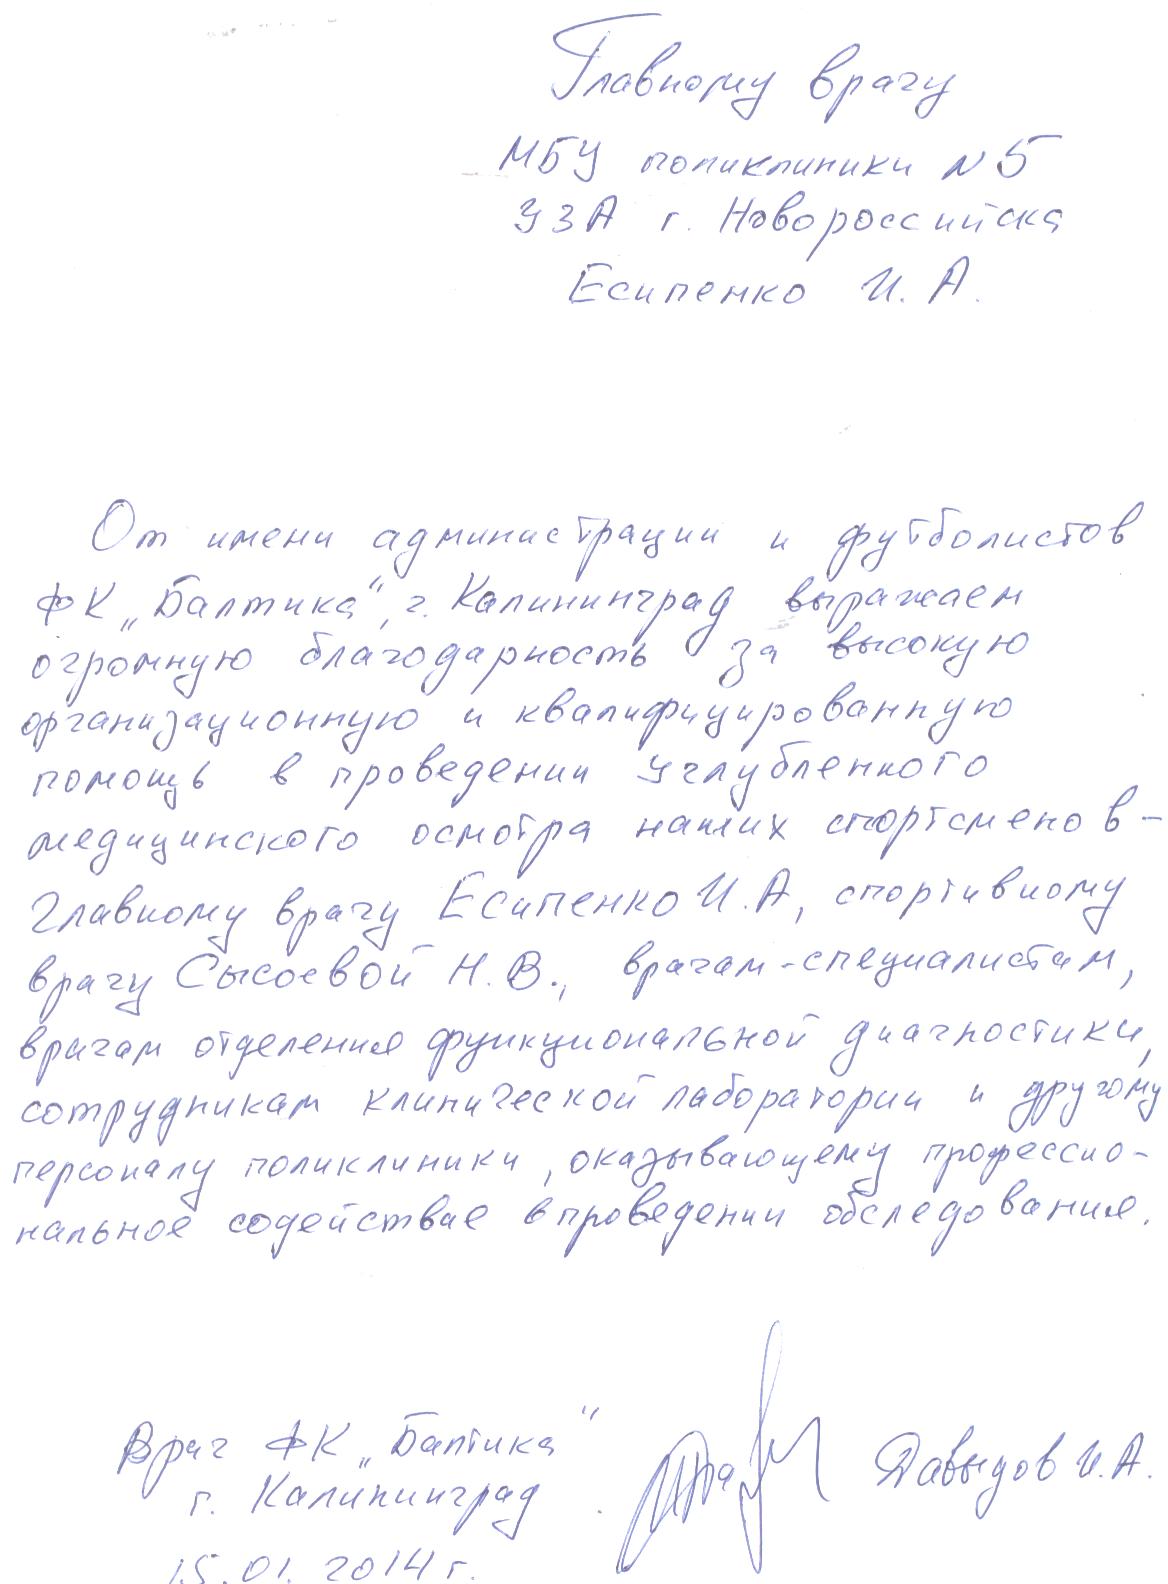 Главному врачу
МБУ поликлиники N5
УЗА г. Новороссийска
Есипенко И. А.
От имени администрации и футболистов
ФК „Балтика", г. Калининград выражаем
огромную благодарность за высокую
организационную и квалифицированную
помощь в проведении углубленного
медицинского осмотра наших спортсменов -
Главному врачу Есипенко И.А, спортивному
врачу Сысоевой Н.В., врачам-специалистам,
врачам отделения функциональной диагностики,
сотрудникам клинической лаборатории и другому
персоналу поликлиники, оказывающему профессио-
нальное содействие в проведении обследования.
Врач ФК „Балтика"
г. Калининград. Давыдов И.А.
15.01.2014 г.